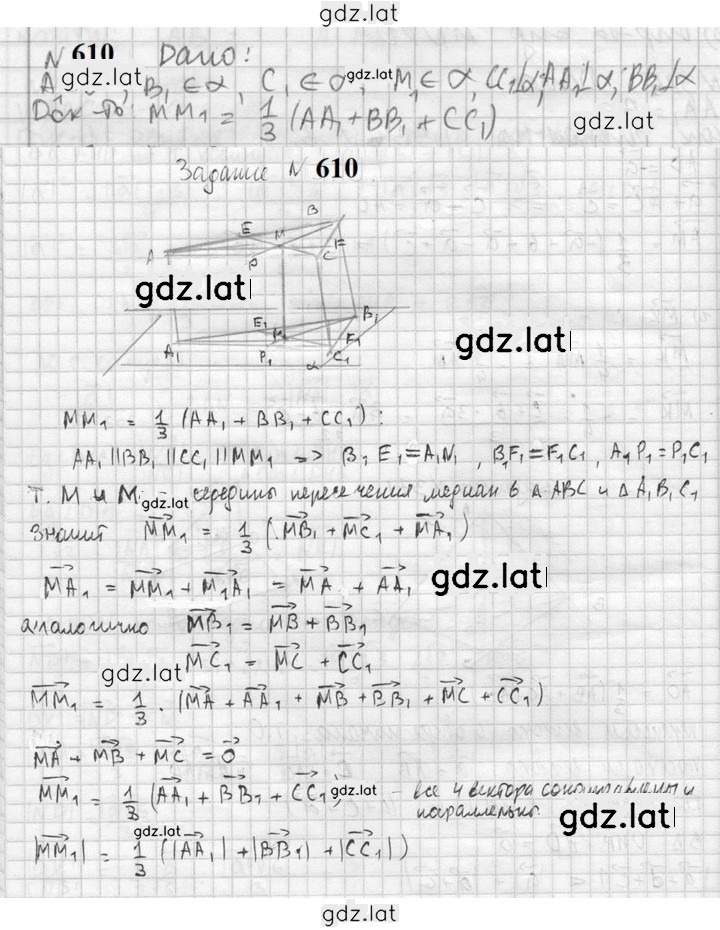 gdz.lat
N 610 Дано:
A gdz.lat , B₁ ∈ α, C₁ ∈ α, gdz.lat M₁ ∈ α, CC₁⊥α, AA₁⊥α, BB₁⊥α
Док-ть: MM₁ = 1/3 (AA₁ + BB₁ + CC₁)
gdz.lat
Задание N 610
B
E M
A P C F
gdz.lat
E₁ M₁ B₁
A₁ P₁ C₁ F₁
α
gdz.lat
MM₁ = 1/3 (AA₁ + BB₁ + CC₁):
AA₁ || BB₁ || CC₁ || MM₁ => B₁E₁ = A₁N₁, B₁F₁ = F₁C₁, A₁P₁ = P₁C₁
т. M и M gdz.lat середины пересечения медиан в Δ ABC и Δ A₁B₁C₁
Значит MM₁ = 1/3 (MB₁ + MC₁ + MA₁)
MA₁ = MM₁ + M₁A₁ = MA + AA₁ gdz.lat
аналогично MB₁ = MB + BB₁
MC₁ = MC + CC₁
gdz.lat
MM₁ = 1/3 · (MA + AA₁ + MB + BB₁ + MC + CC₁)
MA + MB + MC = 0
MM₁ = 1/3 (AA₁ + BB₁ + CC₁) gdz.lat – все 4 вектора сонаправлены и
параллельны
gdz.lat
gdz.lat
|MM₁| = 1/3 (|AA₁| + |BB₁| + |CC₁|)
gdz.lat